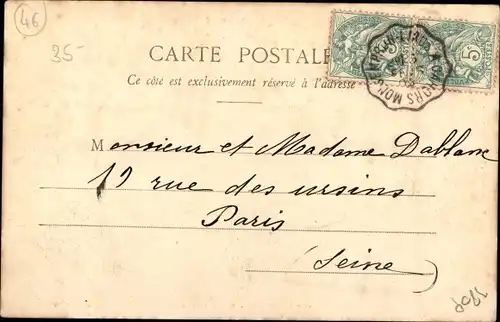 46
35-
CARTE POSTALE
Ce côté est exclusivement réservé à l'adresse
5
5
Monsieur et Madame Dablanc
19 rue des ursins
Paris
(Seine)